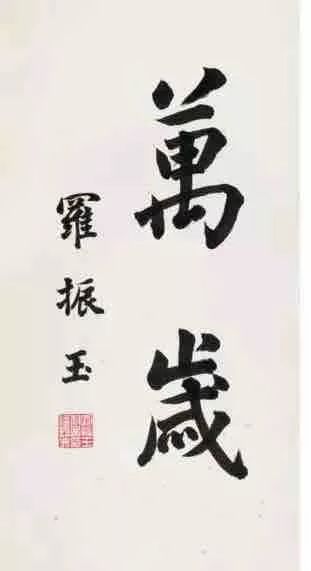 萬歲
羅振玉